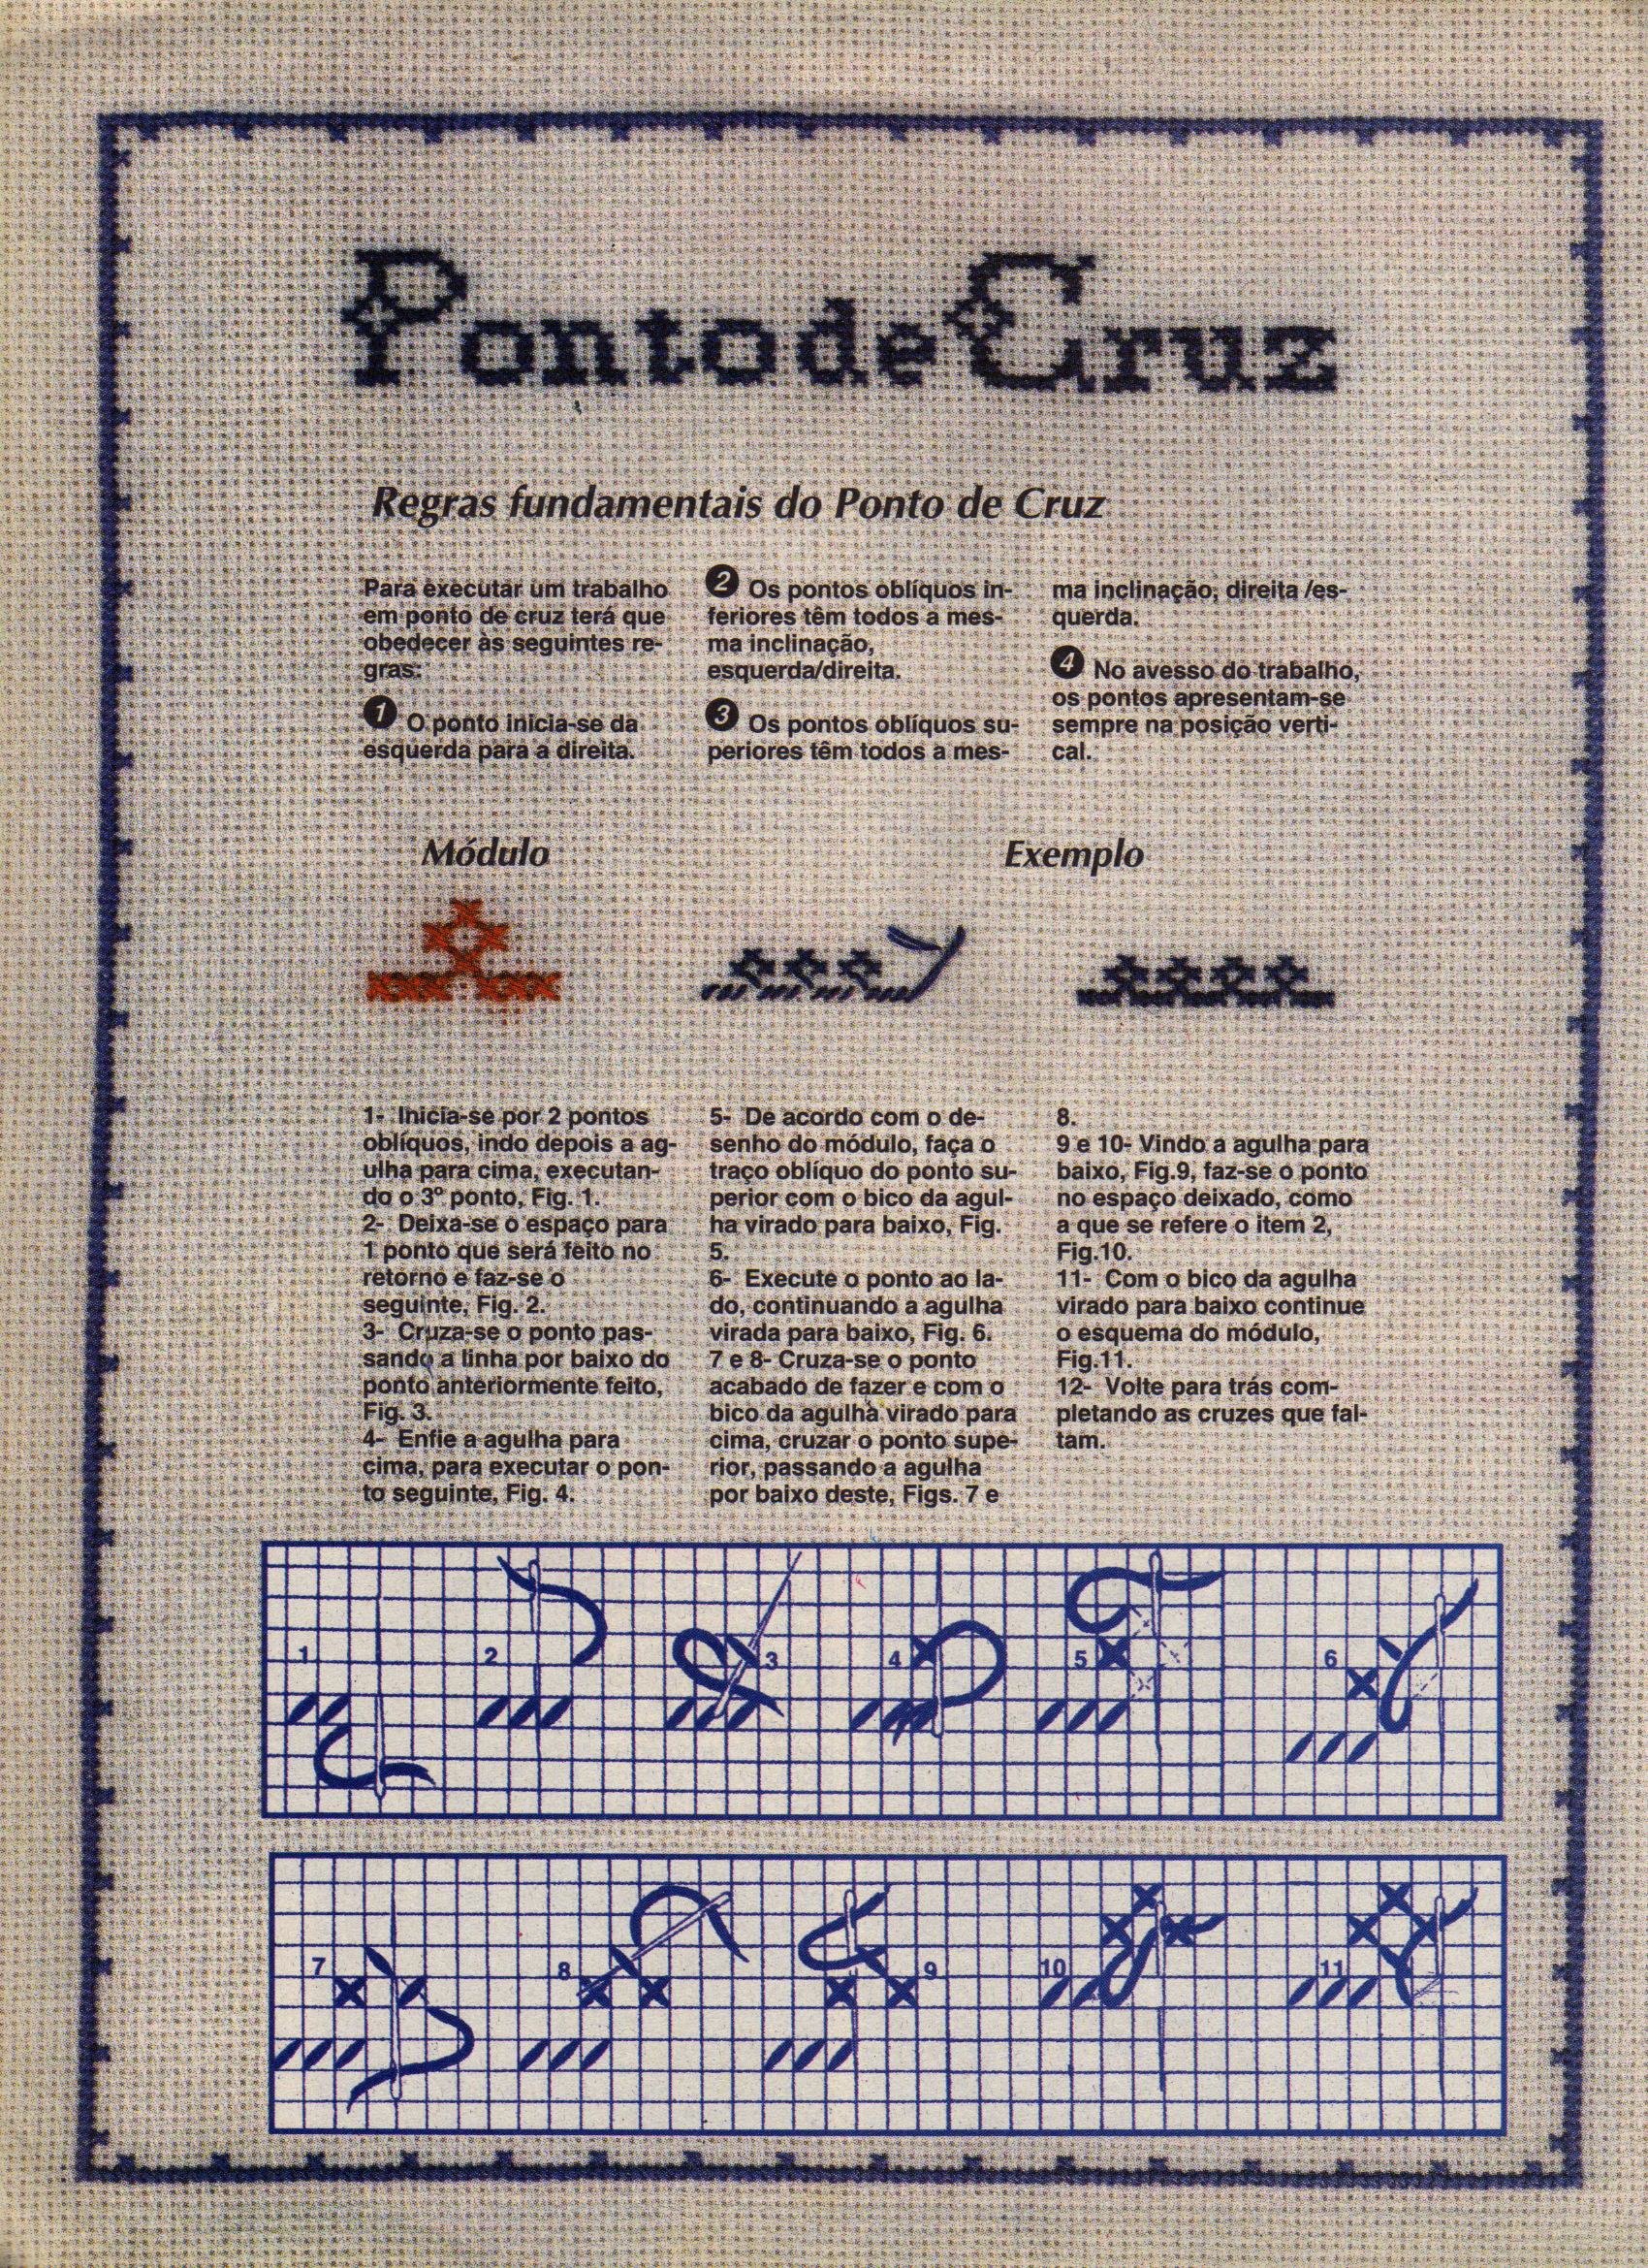 Ponto de Cruz
Regras fundamentais do Ponto de Cruz
Para executar um trabalho
em ponto de cruz terá que
obedecer às seguintes re-
gras:
1 O ponto inicia-se da
esquerda para a direita.
2 Os pontos oblíquos in-
feriores têm todos a mes-
ma inclinação,
esquerda/direita.
3 Os pontos oblíquos su-
periores têm todos a mes-
ma inclinação, direita /es-
querda.
4 No avesso do trabalho,
os pontos apresentam-se
sempre na posição verti-
cal.
Módulo
Exemplo
1- Inicia-se por 2 pontos
oblíquos, indo depois a ag-
ulha para cima, executan-
do o 3º ponto, Fig. 1.
2- Deixa-se o espaço para
1 ponto que será feito no
retorno e faz-se o
seguinte, Fig. 2.
3- Cruza-se o ponto pas-
sando a linha por baixo do
ponto anteriormente feito,
Fig. 3.
4- Enfie a agulha para
cima, para executar o pon-
to seguinte, Fig. 4.
5- De acordo com o de-
senho do módulo, faça o
traço oblíquo do ponto su-
perior com o bico da agul-
ha virado para baixo, Fig.
5.
6- Execute o ponto ao la-
do, continuando a agulha
virada para baixo, Fig. 6.
7 e 8- Cruza-se o ponto
acabado de fazer e com o
bico da agulha virado para
cima, cruzar o ponto supe-
rior, passando a agulha
por baixo deste, Figs. 7 e
8.
9 e 10- Vindo a agulha para
baixo, Fig.9, faz-se o ponto
no espaço deixado, como
a que se refere o item 2,
Fig.10.
11- Com o bico da agulha
virado para baixo continue
o esquema do módulo,
Fig.11.
12- Volte para trás com-
pletando as cruzes que fal-
tam.
1
2
3
4
5
6
7
8
9
10
11